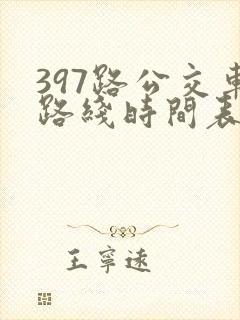 397路公交車
路綫時間表
王寧遠